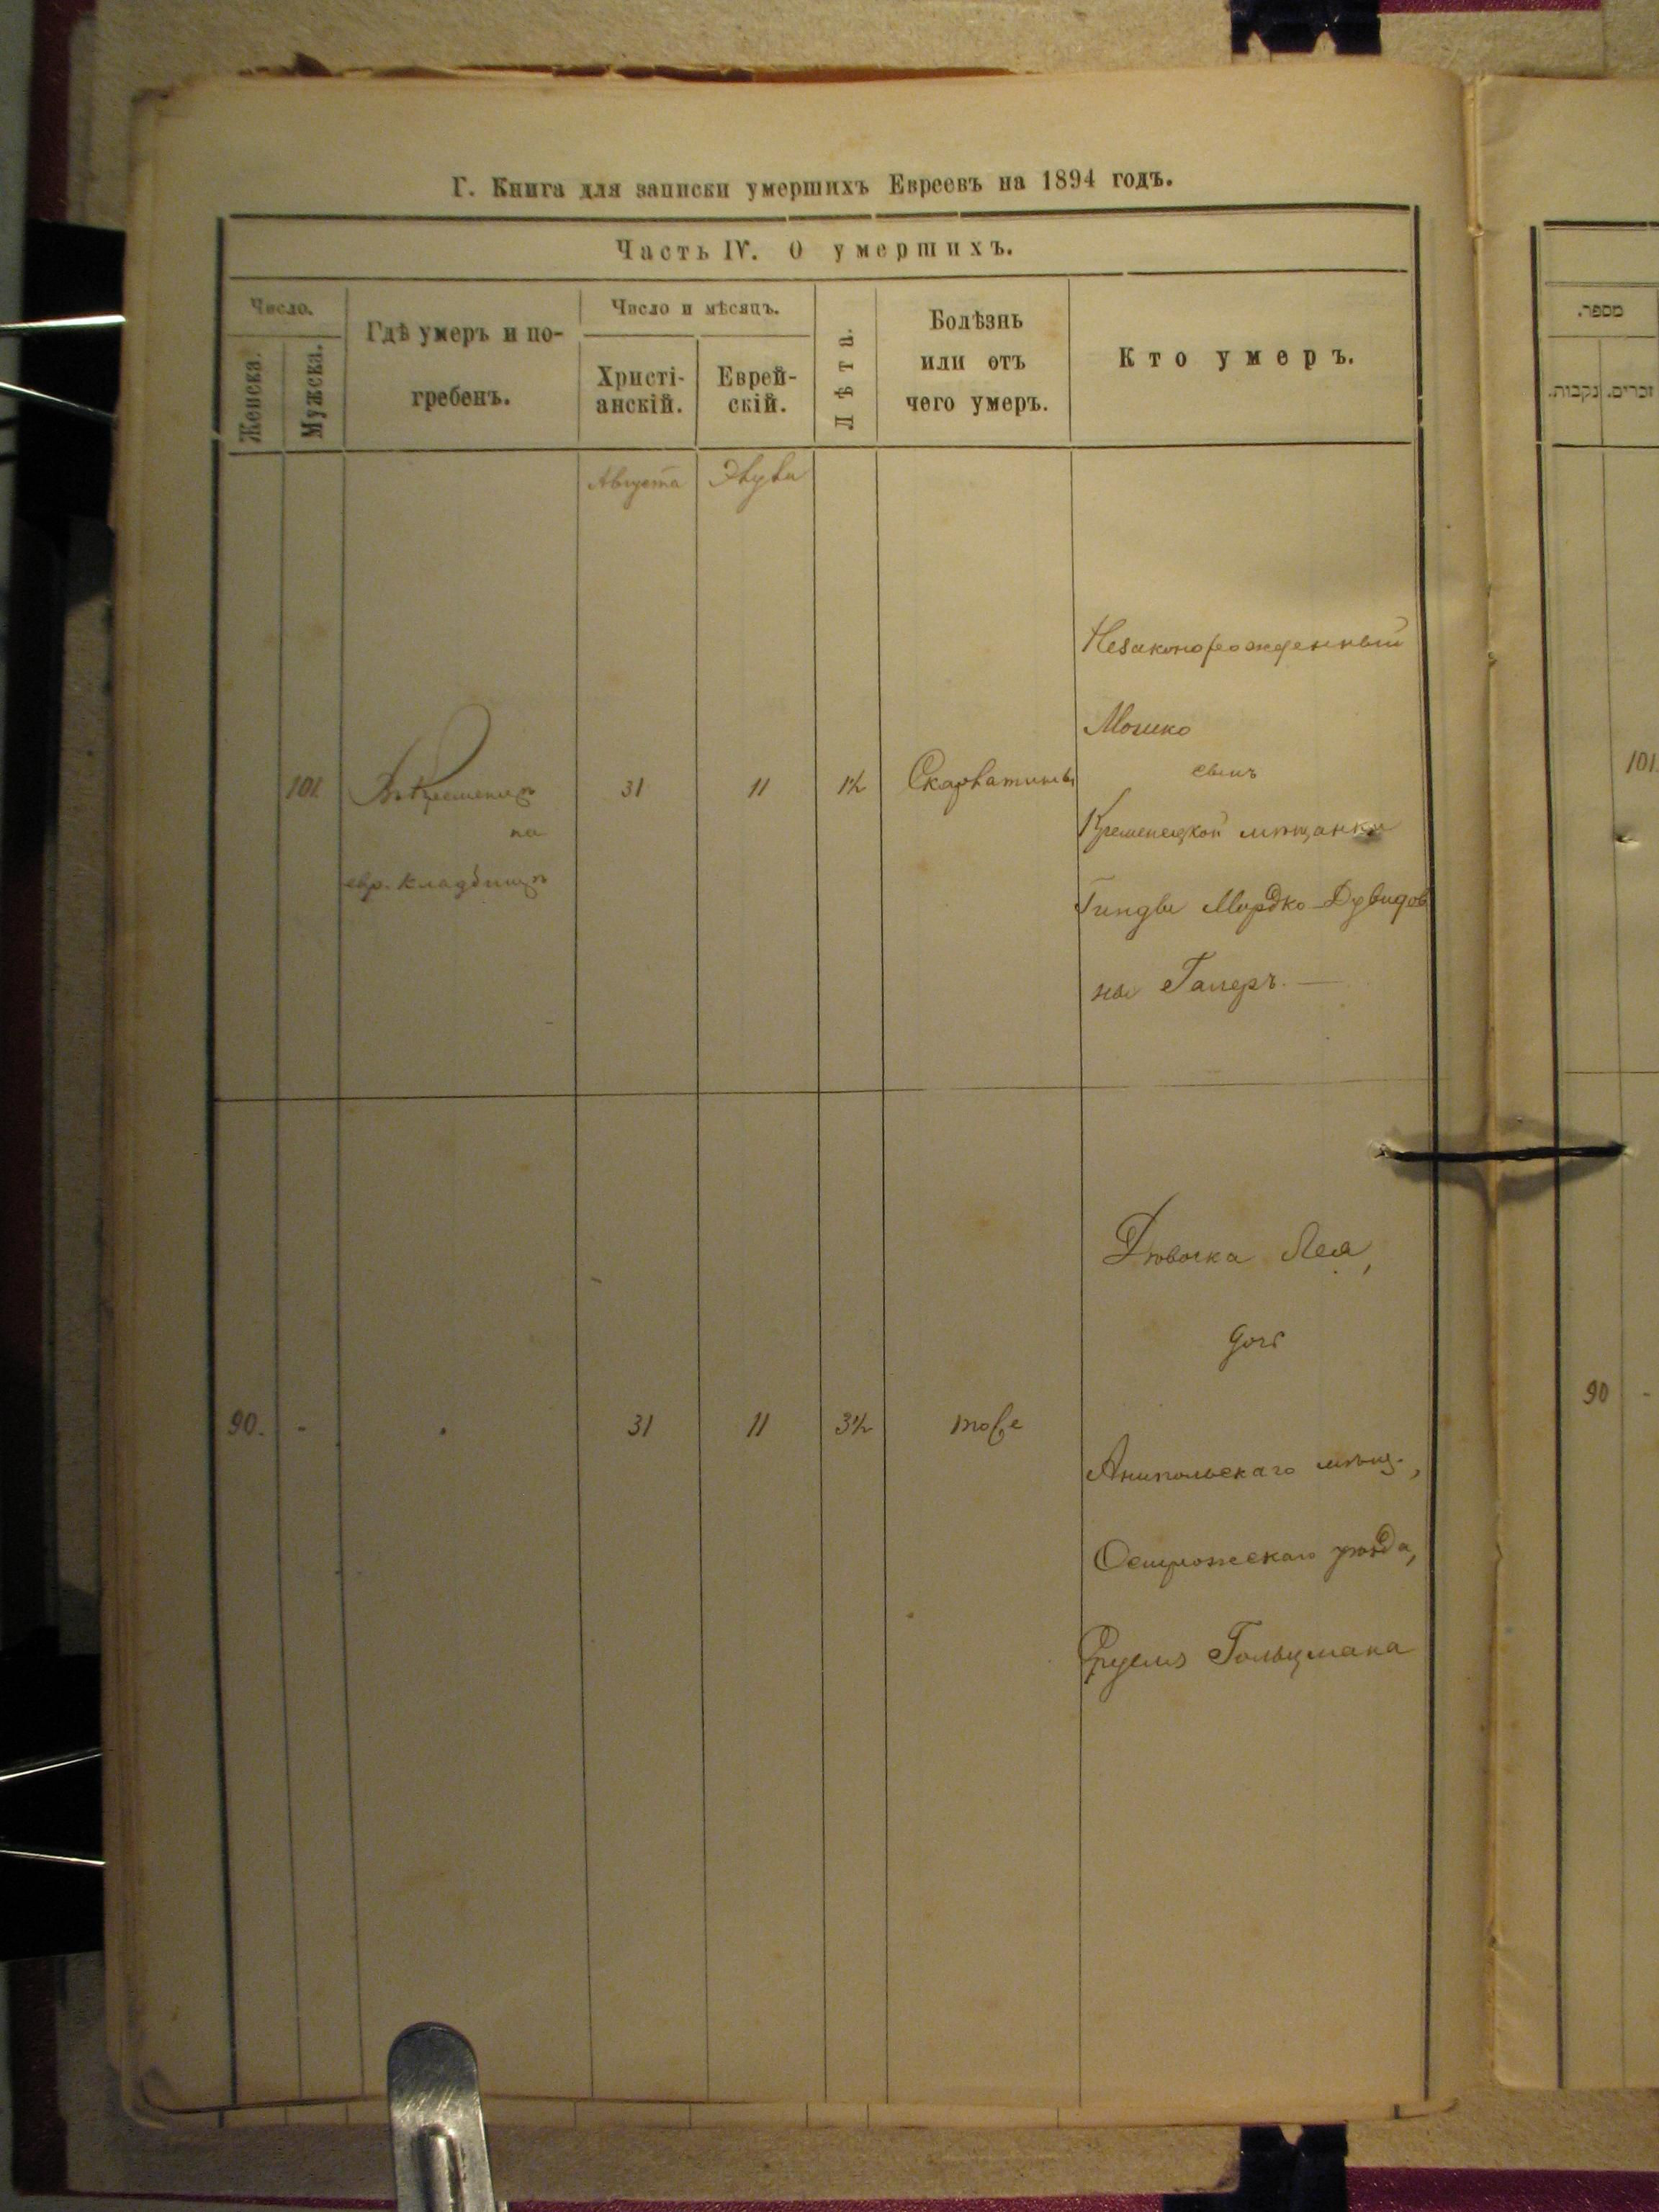 Г. Книга для записки умершихъ Евреевъ на 1894 годъ.
Часть IV. О умершихъ.
Число.
Женска.
Мужска.
Гдѣ умеръ и по-
гребенъ.
Число и мѣсяцъ.
Христі-
анскій.
Еврей-
скій.
Лѣта.
Болѣзнь
или отъ
чего умеръ.
Кто умеръ.
Августа
101.
Въ Кременцѣ
на
евр. кладбищѣ
31
11
1½
Незаконорожденный
Мошко
сынъ
Кременецкой мѣщанки
Мордко-Дувидов
ны
90.
-
31
11
3½
тоже
Дѣвочка Лея,
дочь
Анипольскаго мѣщ.,
Острожскаго уѣзда,
Гольцмана
מספר.
נקבות.
זכרים.
101.
90
-